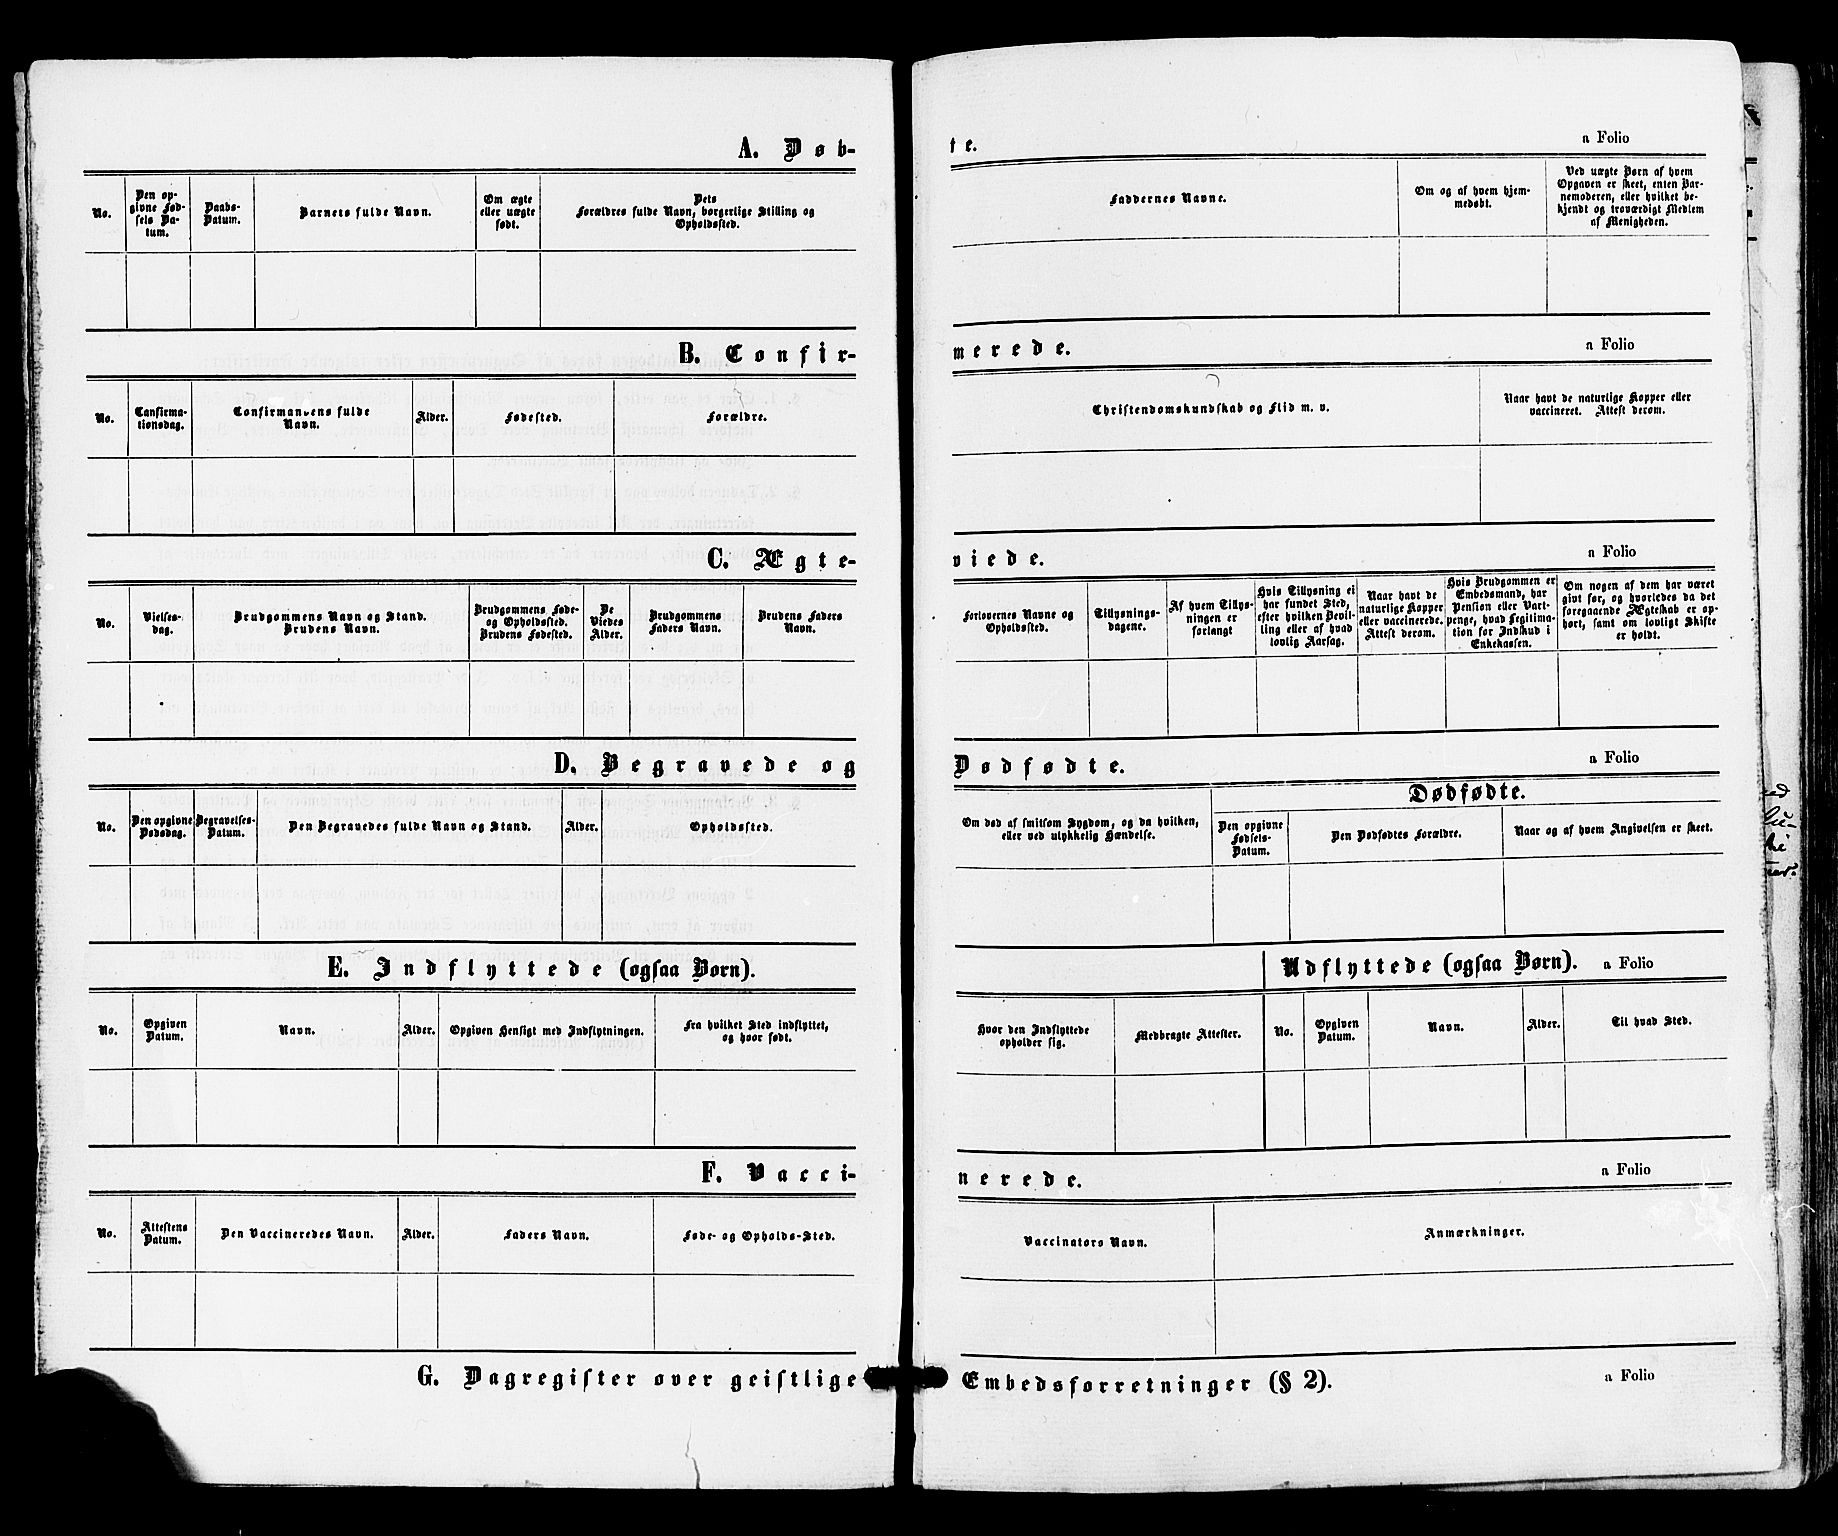 A. Døb-
No.
Den op-
givne Fød-
sels Da-
tum.
Daabs-
Datum.
Barnets fulde Navn.
Om ægte
eller uægte
født.
Dets
Forældres fulde Navn, borgerlige Stilling og
Opholdssted.
te.
a Folio
Faddernes Navne.
Om og af hvem hjem-
medøbt.
Ved uægte Børn af hvem
Opgaven er skeet, enten Bar-
nemoderen, eller hvilket be-
kjendt og troværdigt Medlem
af Menigheden.
B. Confir-
No.
Confirma-
tionsdag.
Confirmandens fulde
Navn.
Alder.
Fødested.
Forældre.
merede.
a Folio
Christendomskundskab og Flid m. v.
Naar havt de naturlige Kopper eller
vaccineret. Attest derom.
C. Ægte-
No.
Vielses-
dag.
Brudgommens Navn og Stand.
Brudens Navn.
Brudgommens Føde-
og Opholdssted.
Brudens Fødested.
De
Viedes
Alder.
Brudgommens
Faders Navn.
Brudens Faders
Navn.
viede.
a Folio
Forlovernes Navne og
Opholdssted.
Tillysnings-
dagene.
Af hvem Tillys-
ningen er
forlangt
Hvis Tillysning ei
har fundet Sted,
efter hvilken Bevil-
ling eller af hvad
lovlig Aarsag.
Naar havt de
naturlige Kopper
eller vaccinerede.
Attest derom.
Hvis Brudgommen er
Embedsmand, har
Pension eller Vart-
penge, hvad Legitima-
tion for Indskud i
Enkekassen.
Om nogen af dem har været
givt før, og hvorledes da det
foregaaende Ægteskab er op-
hørt, samt om lovligt Skifte
er holdt.
D. Begravede og
No.
Den opgivne
Dødsdag.
Begravelses-
Datum.
Den Begravedes fulde Navn og Stand.
Alder.
Opholdssted.
Dødfødte.
a Folio
Om død af smitsom Sygdom, og da hvilken,
eller ved ulykkelig Hændelse.
Dødfødte.
Den opgivne
Fødsels-
Datum.
Den Dødfødtes Forældre.
Naar og af hvem Angivelsen er skeet.
E. Indflyttede (ogsaa Børn).
No.
Opgiven
Datum.
Navn.
Alder.
Opgiven Hensigt med Indflytningen.
Fra hvilket Sted indflyttet,
og hvor født.
Udflyttede (ogsaa Børn).
a Folio
Hvor den Indflyttede
opholder sig.
Medbragte Attester.
No.
Opgiven
Datum.
Navn.
Alder.
Til hvad Sted.
F. Vacci-
No.
Attestens
Datum.
Den Vaccineredes Navn.
Alder.
Faders Navn.
Føde- og Opholds-Sted.
nerede.
a Folio
Vaccinators Navn.
Anmærkninger.
G. Dagregister over geistlige
Embedsforretninger (§ 2).
a Folio